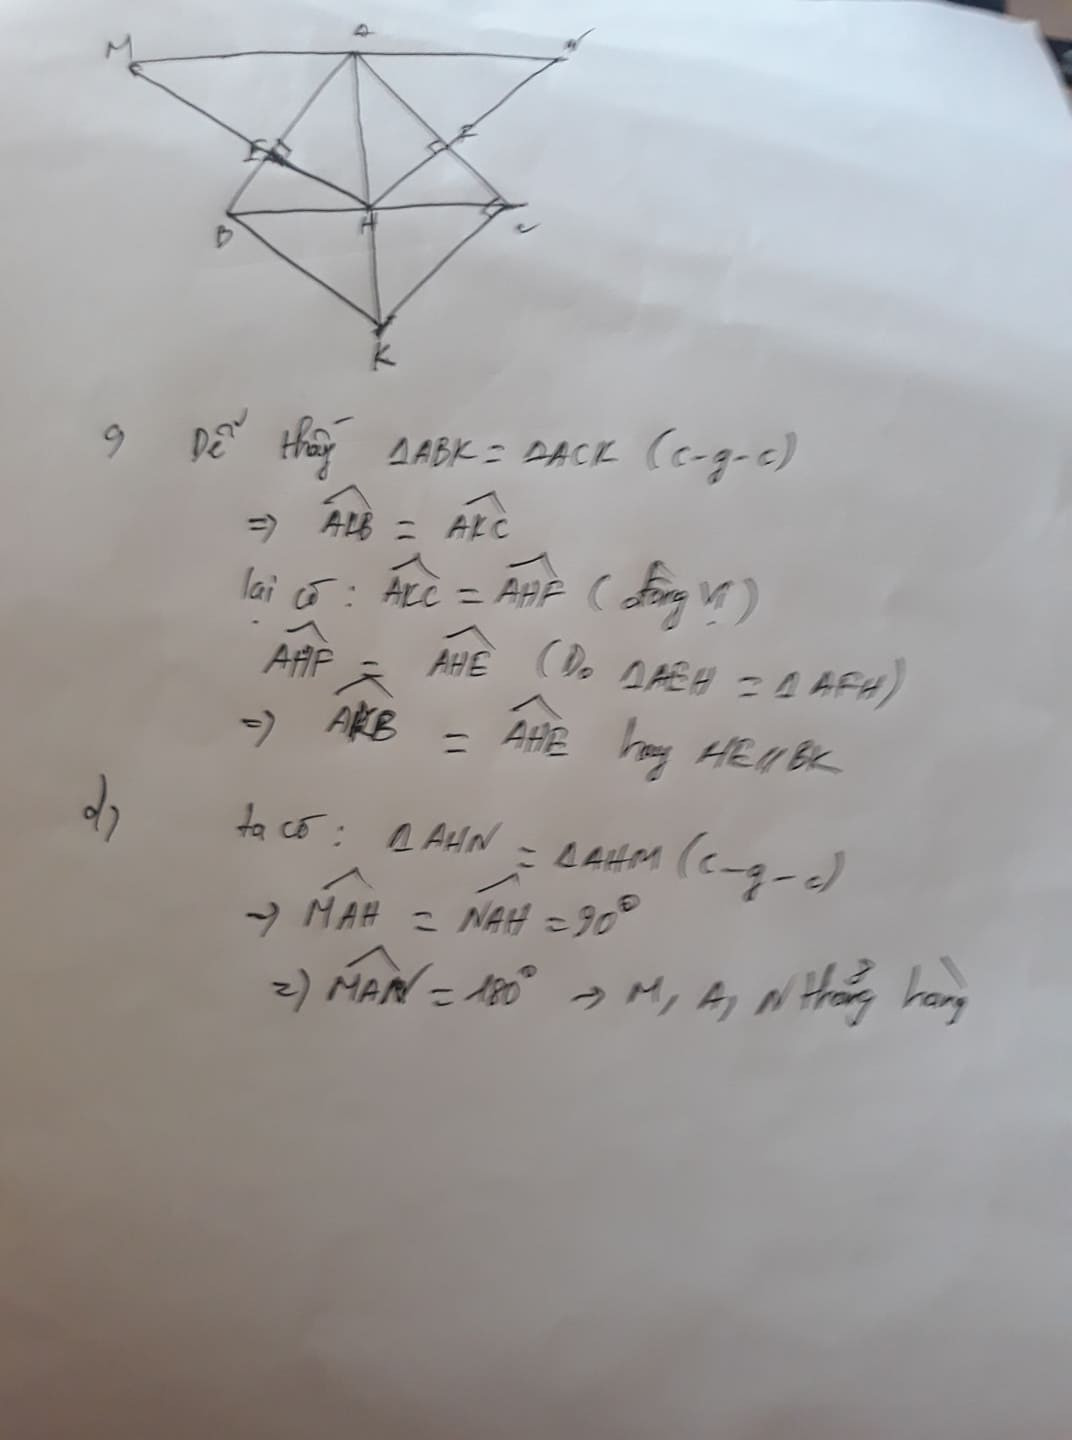 M A N
E F
B H C
K
c, Dễ thấy ΔABK = ΔACK (c-g-c)
=> AKB = AKC
lại có: AKC = AHF (đồng vị)
AHF = AHE (Do ΔAEH = ΔAFH)
=> AKB = AHE hay HE//BK
d, ta có: ΔAHN = ΔAHM (c-g-c)
-> MAH = NAH = 90°
=> MAN = 180° -> M, A, N thẳng hàng